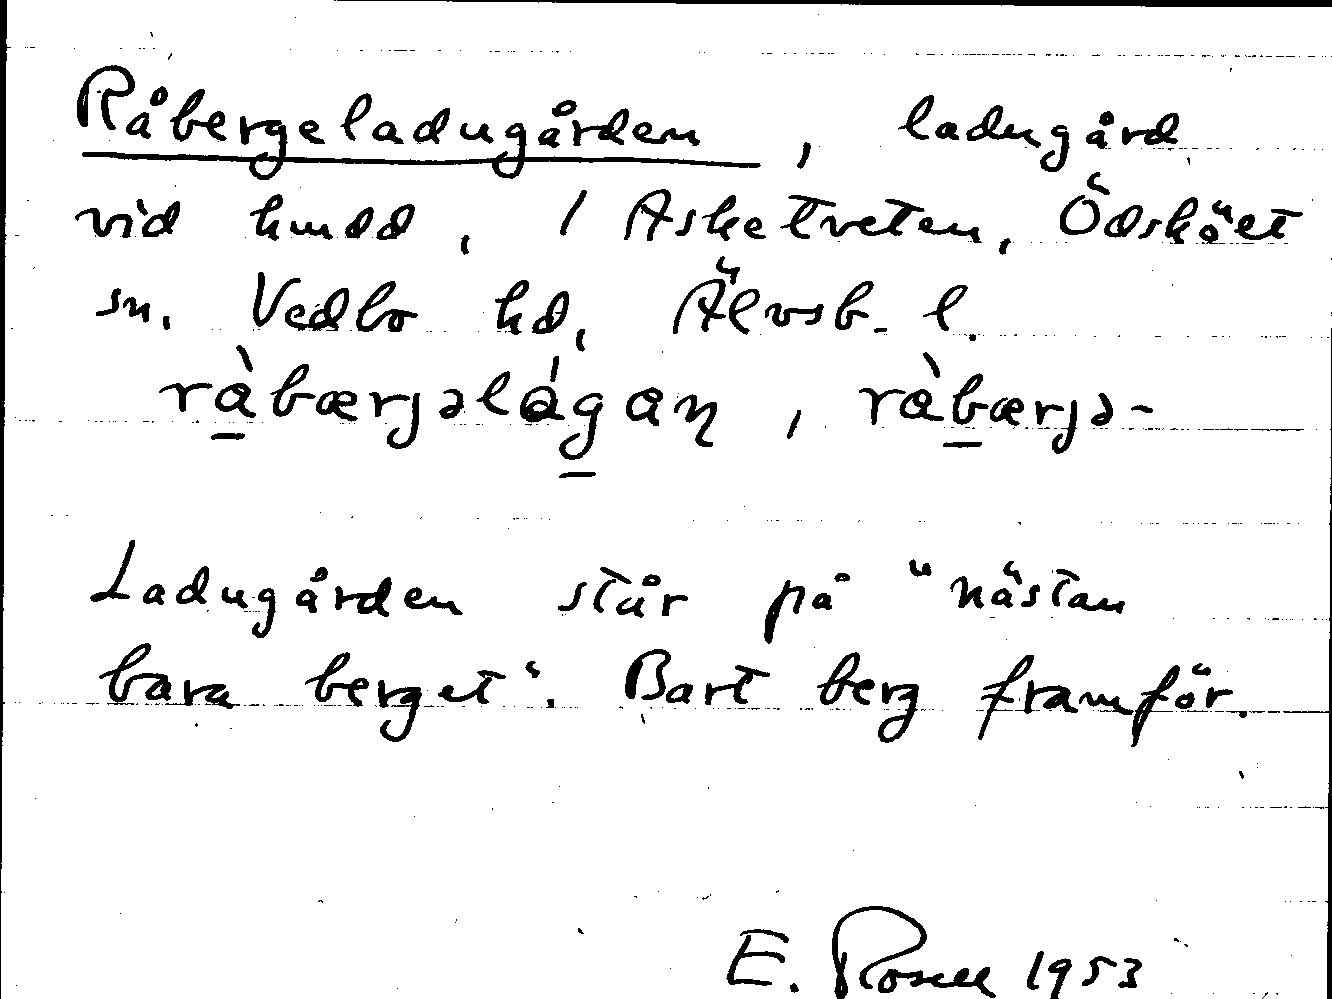 Råbergeladugården, ladugård
vid hmdd, 1 Asketveten, Ödskölt
sn. Vedbo hd, Älvsb. l.
ràbærjəlágaɳ, ràbærjə-
Ladugården står på "nästan
bara berget". Bart berg framför.
E. Rosell 1953